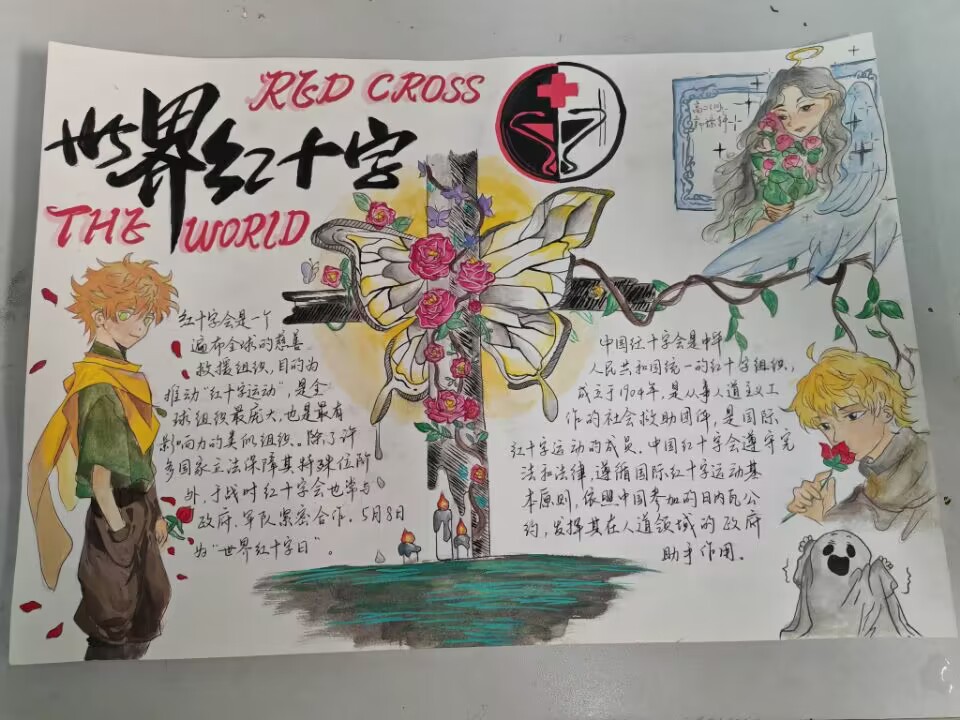 RED CROSS
世界红十字
THE WORLD
红十字会是一个
遍布全球的慈善
救援组织，目的为
推动“红十字运动”，是全
球组织最庞大，也是最有
影响力的类似组织。除了许
多国家立法保障其特殊位阶
外，于战时红十字会也常与
政府、军队紧密合作。5月8日
为“世界红十字日”。
中国红十字会是中华
人民共和国统一的红十字组织，
成立于1904年，是从事人道主义工
作的社会救助团体，是国际
红十字运动的成员。中国红十字会遵守宪
法和法律，遵循国际红十字运动基
本原则，依照中国参加的日内瓦公
约，发挥其在人道领域的政府
助手作用。